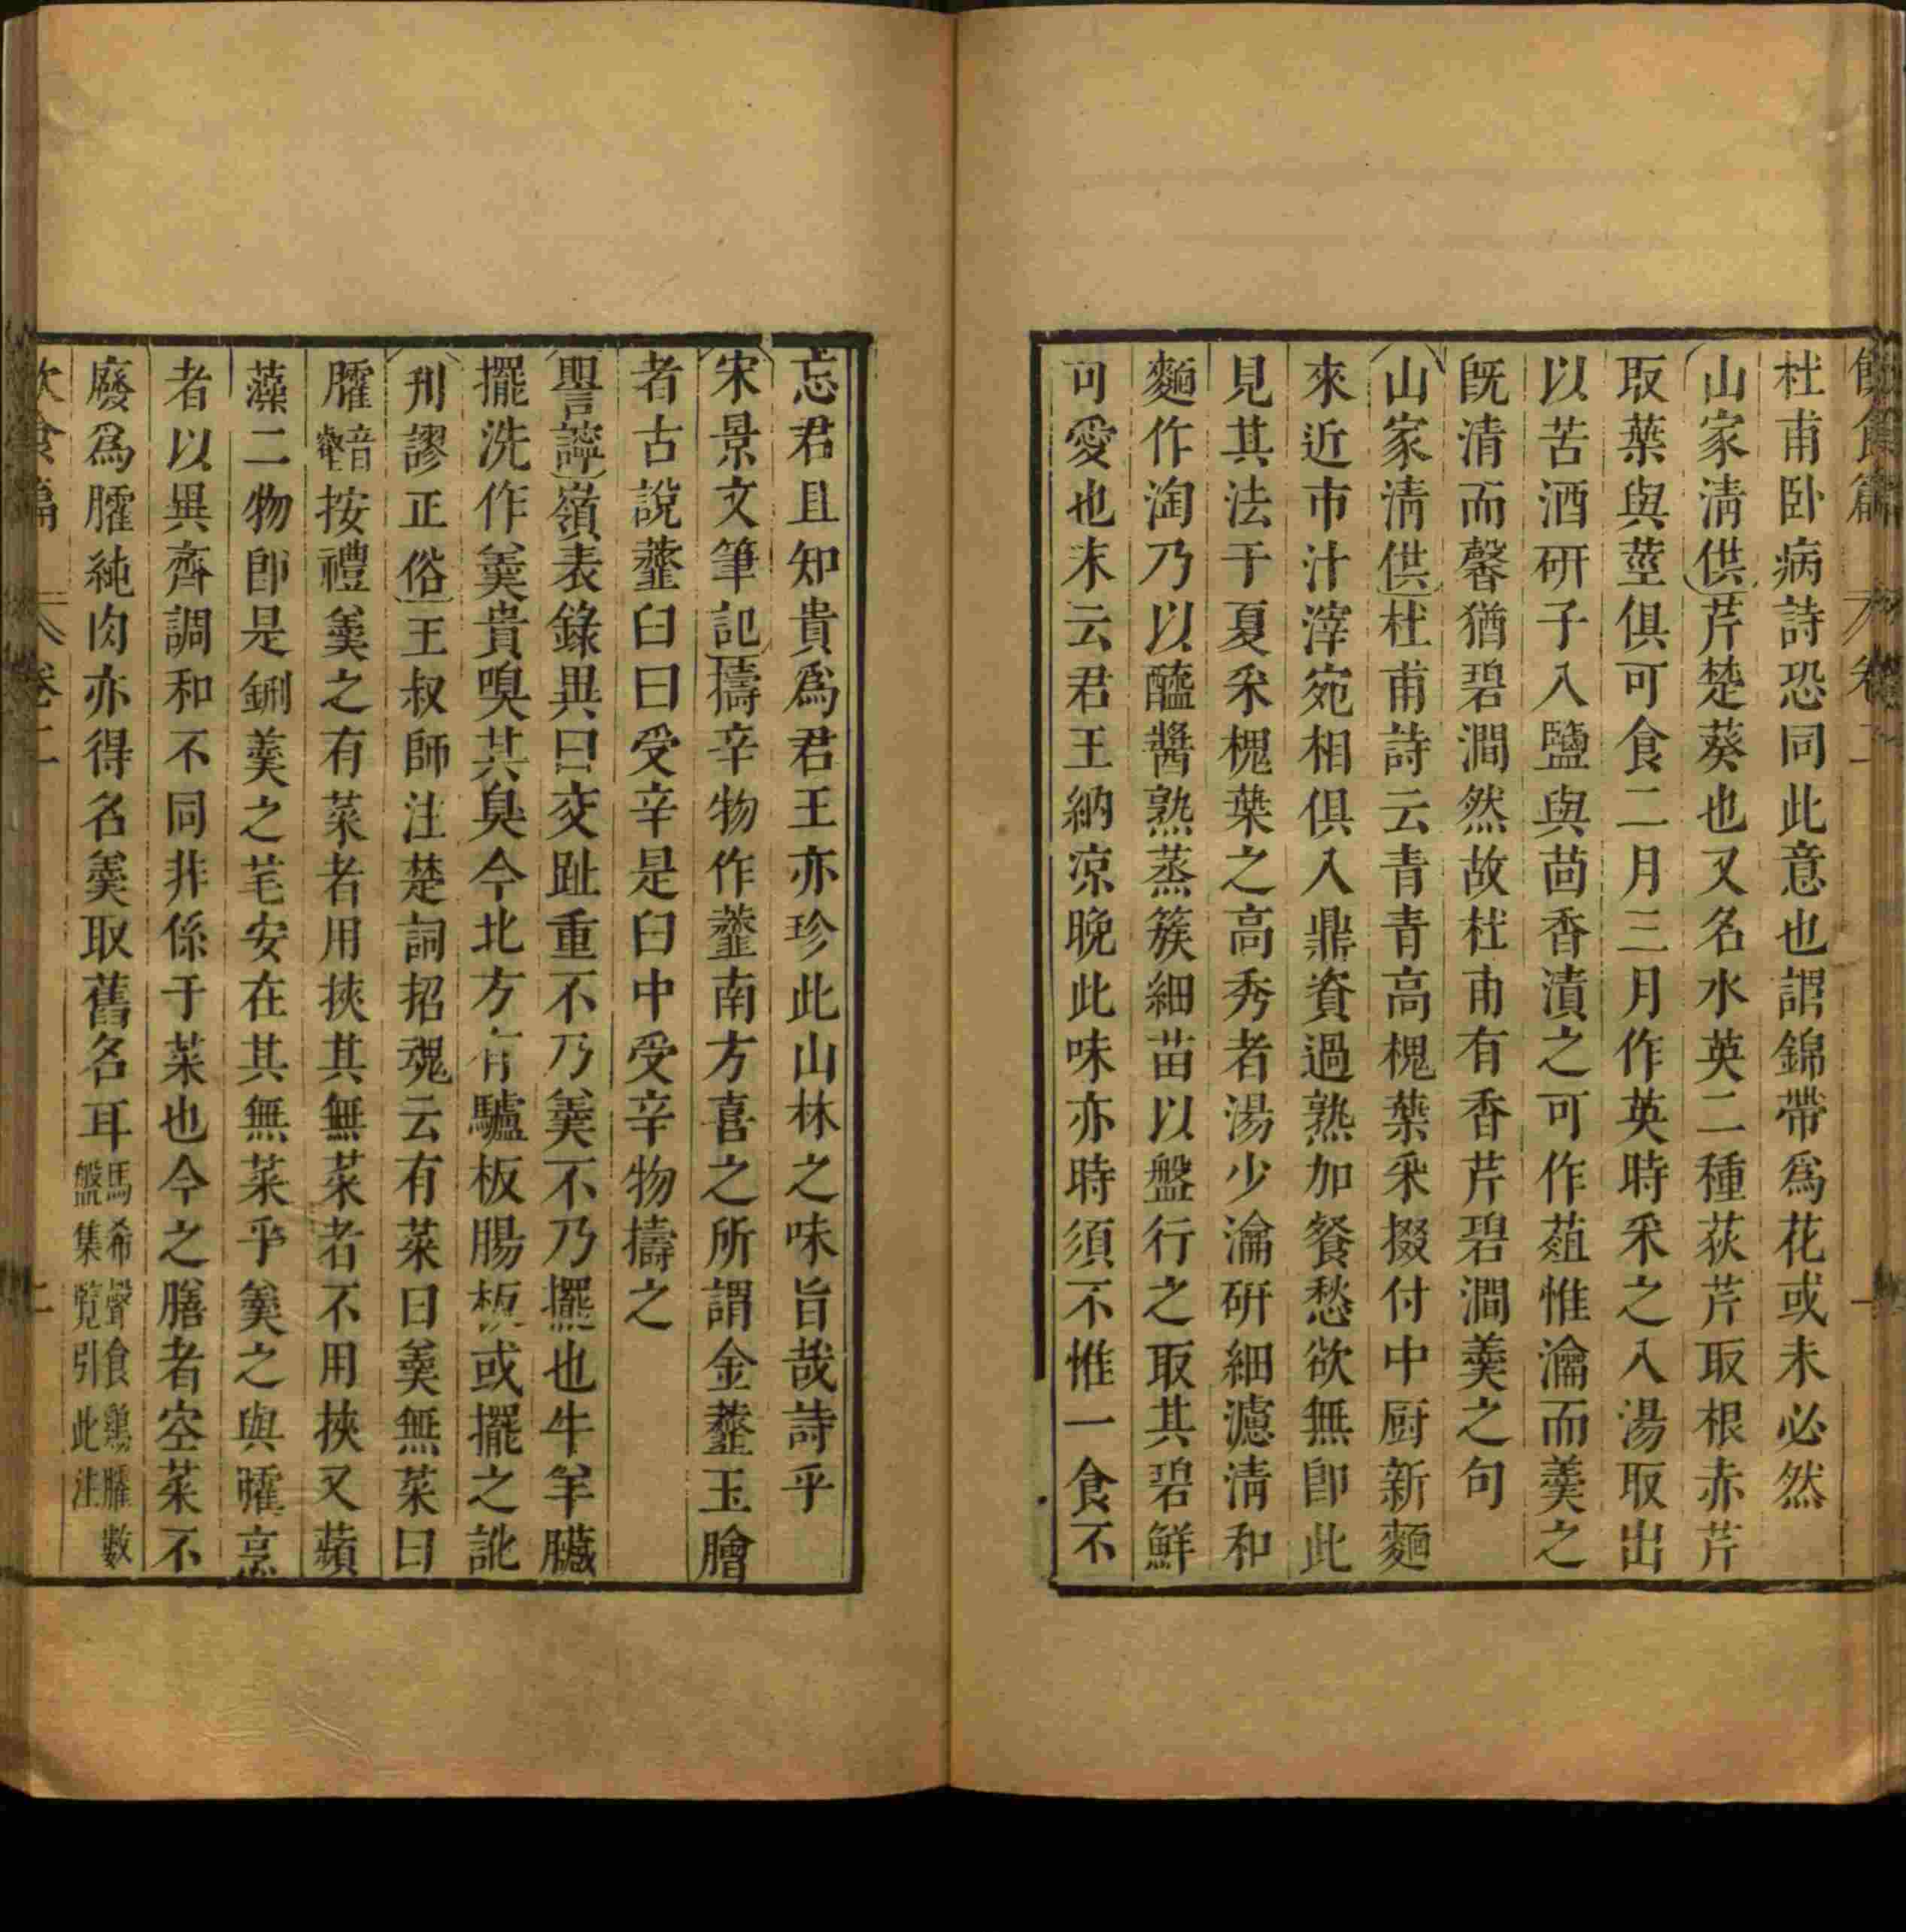 飲食篇 卷二
杜甫卧病詩恐同此意也謂錦帶爲花或未必然
山家淸供芹楚葵也又名水英二種荻芹取根赤芹
取葉與莖俱可食二月三月作英時采之入湯取出
以苦酒研子入鹽與茴香漬之可作葅惟瀹而羹之
旣清而馨猶碧澗然故杜甫有香芹碧澗羹之句
山家淸供杜甫詩云青青高槐葉采掇付中厨新麵
來近市汁滓宛相俱入鼎資過熟加餐愁欲無卽此
見其法于夏采槐葉之高秀者湯少瀹研細濾淸和
麵作淘乃以醯醬熟蒸簇細苗以盤行之取其碧鮮
可愛也末云君王納凉晚此味亦時須不惟一食不
忘君且知貴爲君王亦珍此山林之味旨哉詩乎
宋景文筆記擣辛物作虀南方喜之所謂金虀玉膾
者古說虀臼曰受辛是臼中受辛物擣之
嶺表錄異曰交趾重不乃羹不乃擺也牛羊臟
擺洗作羹貴嗅其臭今北方有驢板腸板或擺之訛
刋謬正俗王叔師注楚詞招魂云有菜曰羹無菜曰
臛音壑按禮羹之有菜者用挾其無菜者不用挾又蘋
藻二物卽是鉶羹之芼安在其無菜乎羹之與臛烹
者以異齊調和不同非係于菜也今之膳者空菜不
廢爲臛純肉亦得名羹取舊名耳馬希聲食鷄臛數
盤集覽引此注
飲食篇 卷二